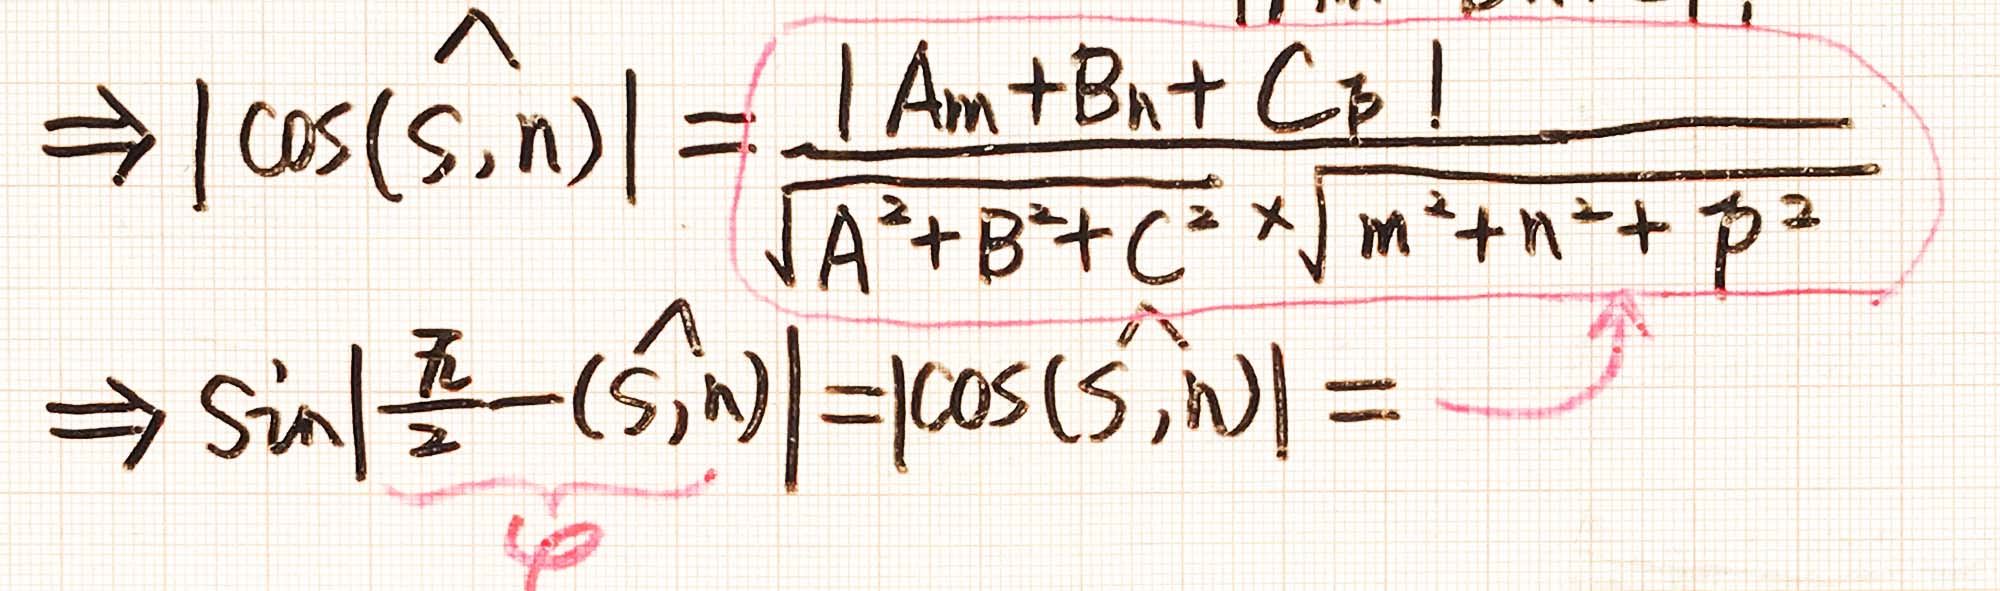 ⇒ |cos(s,^n)| = |Am+Bn+Cp| / √(A²+B²+C²) × √(m²+n²+p²)
⇒ sin|π/2 - (s,^n)| = |cos(s,^n)| =
φ